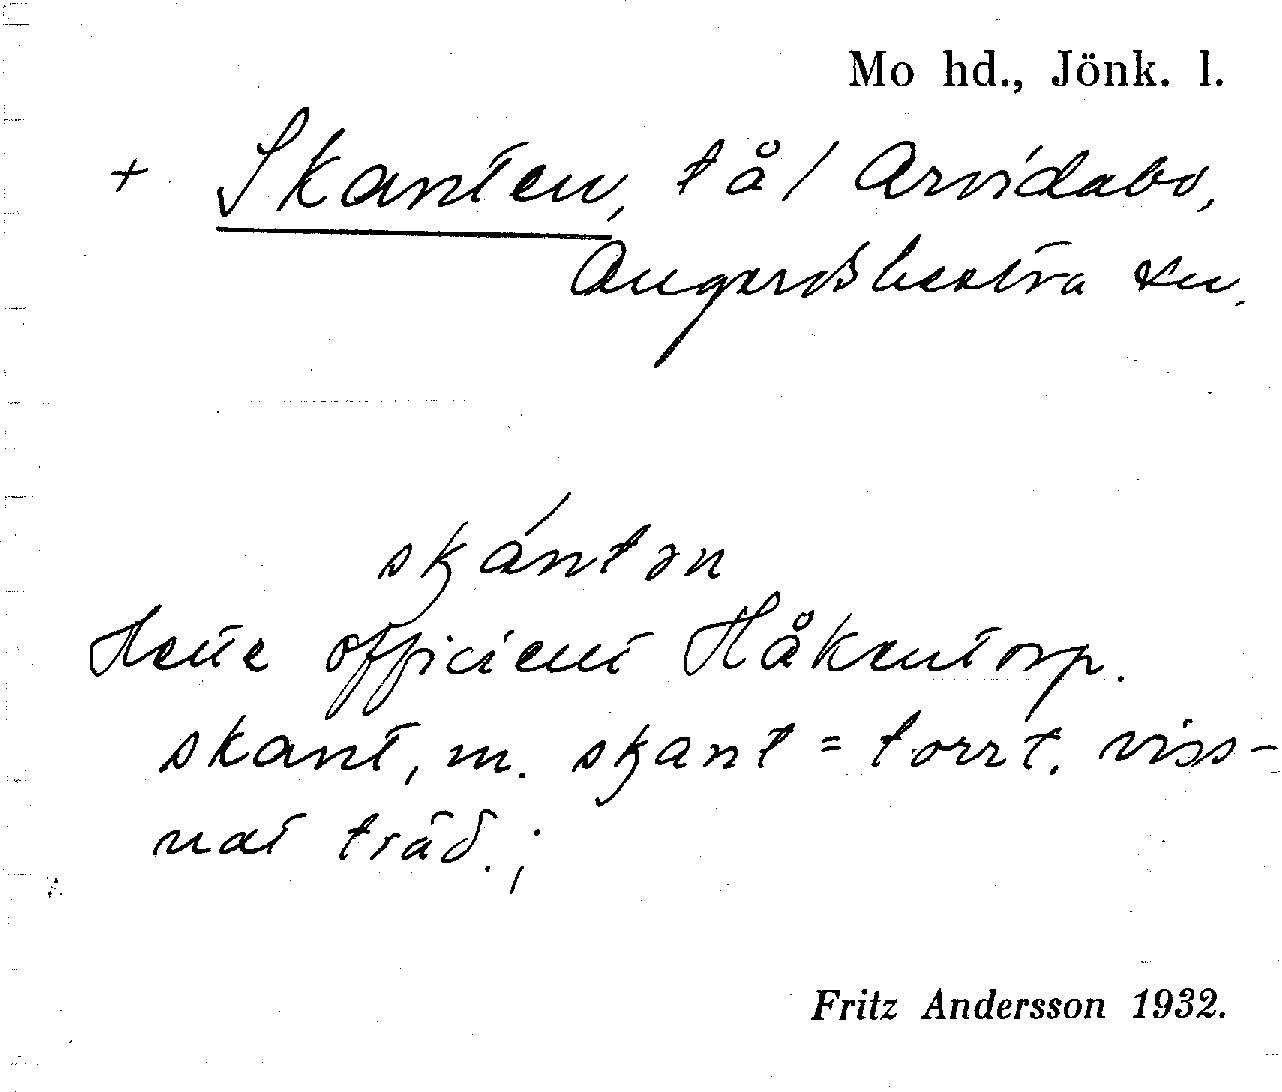 Mo hd., Jönk. l.
+ Skanten, tå/ Arvidabo,
Angerdshestra sn.
skántən
Hette officient Håkentorp.
skant, m. skant = torrt, viss-
nat träd.;
Fritz Andersson 1932.